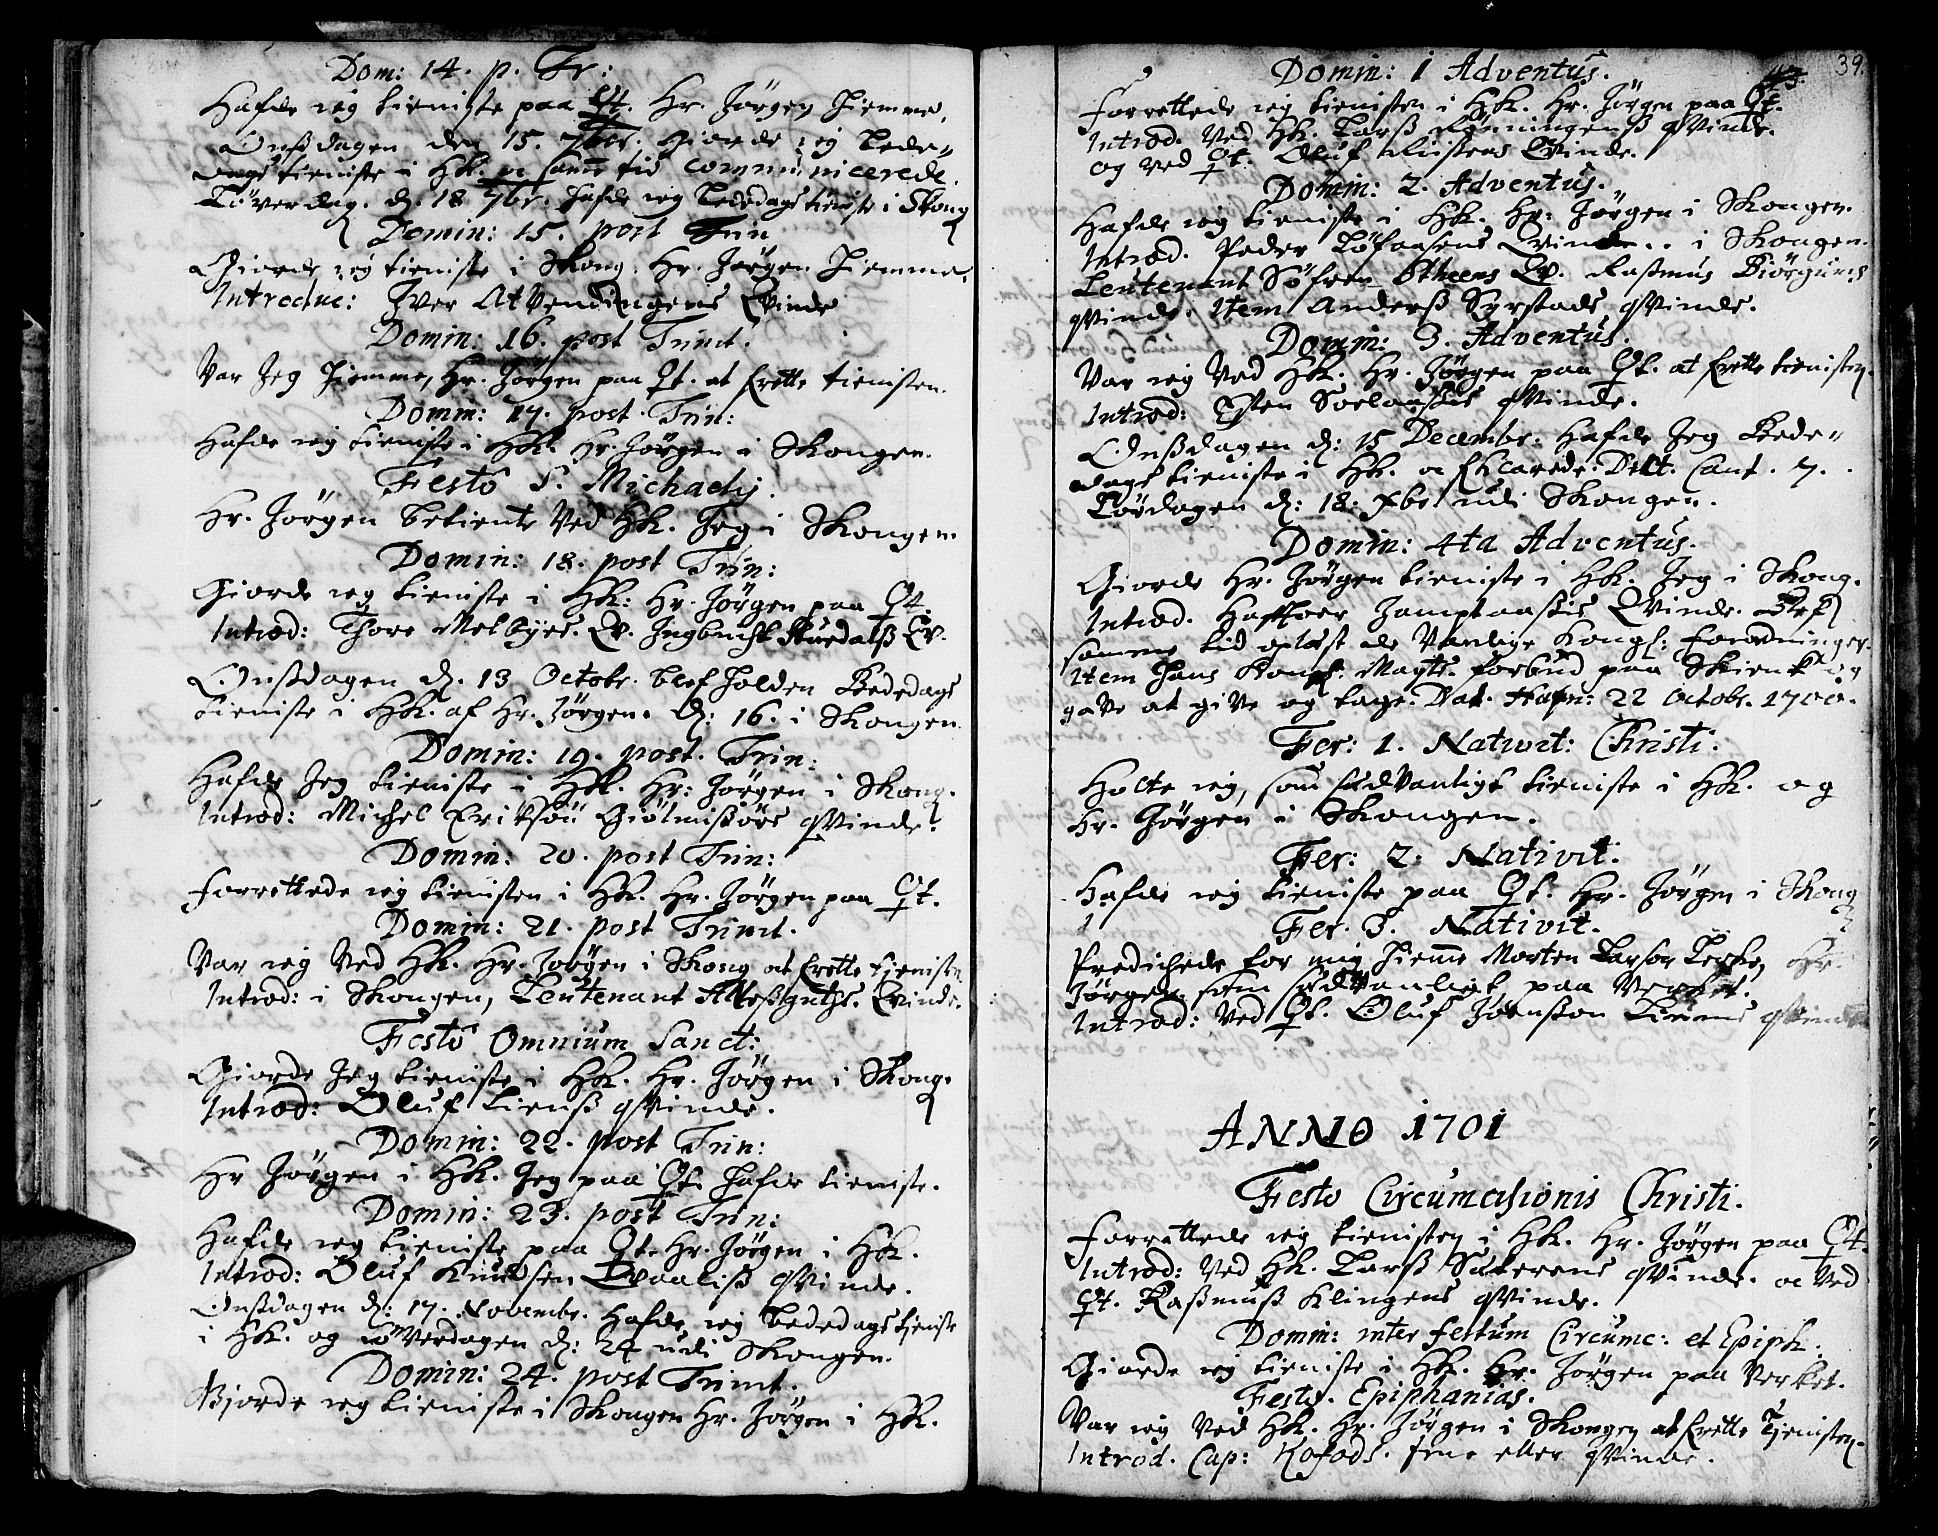 Dom: 14. p. Tr:
Hafde ieg tieniste paa Qt. Hr. Jörgen hiemme.
Onßdagen den 15. 7br. giorde ieg Bede-
dags tieniste i HK. oc samme tid communicerede.
Löverdag. d. 18 7br. hafde ieg Bededags tieniste i Skong
Domin: 15. post Trin
Giorde ieg tieniste i Skong. Hr. Jörgen hiemme.
Introduc: Iver Atvendingens Qvinde
Domin: 16. post Trinit.
Var Jeg hiemme, Hr. Jörgen paa Qt. at forrette tienisten.
Domin: 17. post Trin:
Hafde ieg tieniste i HK. Hr. Jörgen i Skongen.
Festo S. Michaelis.
Hr. Jörgen betiente ved HK. Jeg i Skongen.
Domin: 18. post Trin:
Giorde ieg tieniste i HK: Hr. Jörgen paa Qt.
Introd: Thore Melbyes. Qv. Ingbricht Stuedalß Qv.
Onßdagen d. 13 Octobr. blef holden Bededags
tieniste i HK. af Hr. Jörgen. d: 16. i Skongen.
Domin: 19. post. Trin:
Hafde Jeg tieniste i HK. Hr: Jörgen i Skong.
Introd: Michel Eriksön Giölmisöes qvinde.
Domin: 20. post Trin:
Forrettede ieg tienisten i HK. Hr. Jörgen paa Qt.
Domin: 21. post Trinit.
Var ieg ved HK. Hr. Jörgen i Skong at forrette tienisten
Introd: i Skongen, Leutenant Qvinde.
Festo Omnium Sanct:
Giorde Jeg tieniste i HK. Hr. Jörgen i Skong.
Introd: Oluf Lienß qvinde.
Domin: 22. post Trin:
Hr Jörgen i HK. Jeg paa Qt. hafde tieniste.
Domin: 23. post Trin:
Hafde ieg tieniste paa Qt. Hr. Jörgen i HK.
Introd: Oluf Knudsen Qvaaliß qvinde.
Onßdagen d: 17. Novembr. hafde ieg bededags tieniste
i HK. og Löverdagen d: 24 udi Skongen.
Domin: 24. post Trinit.
Gjorde ieg tieniste i Skongen Hr. Jörgen i HK.
39.
Domin: 1 Adventus.
Forrettede ieg tienisten i HK. Hr. Jörgen paa Qt.
Introd. ved HK. Larß Rönningenß qvinde.
og ved Qt. Oluf Qvinde.
Domin: 2. Adventus.
Hafde ieg tieniste i HK. Hr: Jörgen i Skongen.
Introd. Peder Löfaasens Qvinde.. i Skongen.
Leutenant Söfren Otheens Qv. Rasmus Biörgums
qvinde. Item Anderß Syrstads qvinde.
Domin: 3. Adventus.
Var ieg ved HK. Hr. Jörgen paa Qt. at forrette tienisten.
Introd: Esten qvinde.
Onßdagen d: 15 Decembr. Hafde Jeg Bede-
dags tieniste i HK. oc Cant. 7.
Lövdagen d: 18. Xbr udi Skongen.
Domin: 4ta Adventus.
Giorde Hr. Jörgen tieniste i HK. Jeg i Skong.
Introd. Qvinde. Blef
samme tid oplæst de vanlige Kongl: forordninger.
Item hans Kongl. Mayts. forbud paa Skienk og
gave at give og tage. Dat. Hafn: 22 Octobr. 1700.
Fer: 1. Nativit: Christi.
Holte ieg, som sædvanligt tieniste i HK. og
Hr. Jörgen i Skongen.
Fer: 2. Nativit:
Hafde ieg tieniste paa Qt. Hr. Jörgen i Skong
Fer. 3. Nativit.
Predichede for mig hiemme Morten Larson Hr.
Jörgen som sædvanligt paa Verket.
Introd: ved Qt. Oluf Joenson qvinde
ANNO 1701
Festo Circumcisionis Christi.
Forrettede ieg tienisten i HK. Hr. Jörgen paa Qt.
Introd: ved HK. Larß qvinde. oc ved
Qt. Raßmuß Klingens qvinde.
Domin: inter festum Circumc: et Epiph.
Giorde ieg tieniste i HK. Hr. Jörgen paa Verket.
Festo. Epiphanias.
Var ieg ved HK. Hr. Jörgen i Skongen at forrette Tjenisten.
Introd. Cap: Kofods. frue eller qvinde.